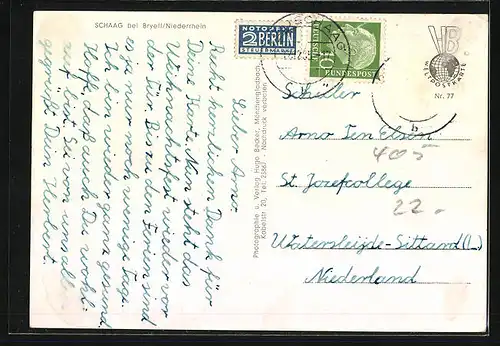 SCHAAG bei Breyell/Niederrhein
Lieber Arno
Recht herzlichen Dank für
Deine Kart. Nun steht das
Weihnachtsfest wieder vor
der Tür. Bis zu den Ferien sind
es ja nur noch wenige Tage.
Ich bin wieder ganz gesund.
Hoffe, daß auch Du wohl-
auf bist. Sei von uns all.
gegrüßt. Dein Herbert.
Photographie u. Verlag Hugo Becker, Mönchengladbach
Kabelstr. 20, Tel. 2386/ Nachdruck verboten
NOTOPFER
2 BERLIN
STEUERMARKE
10
DEUTSCHE
BUNDESPOST
SCHAAG
b
VB
WELTPOSTKARTE
Nr. 77
Schüler
Arno Ten Elsen
405
St. Jozefcollege
22.-
Watersleijde-Sittard (L.)
Niederland